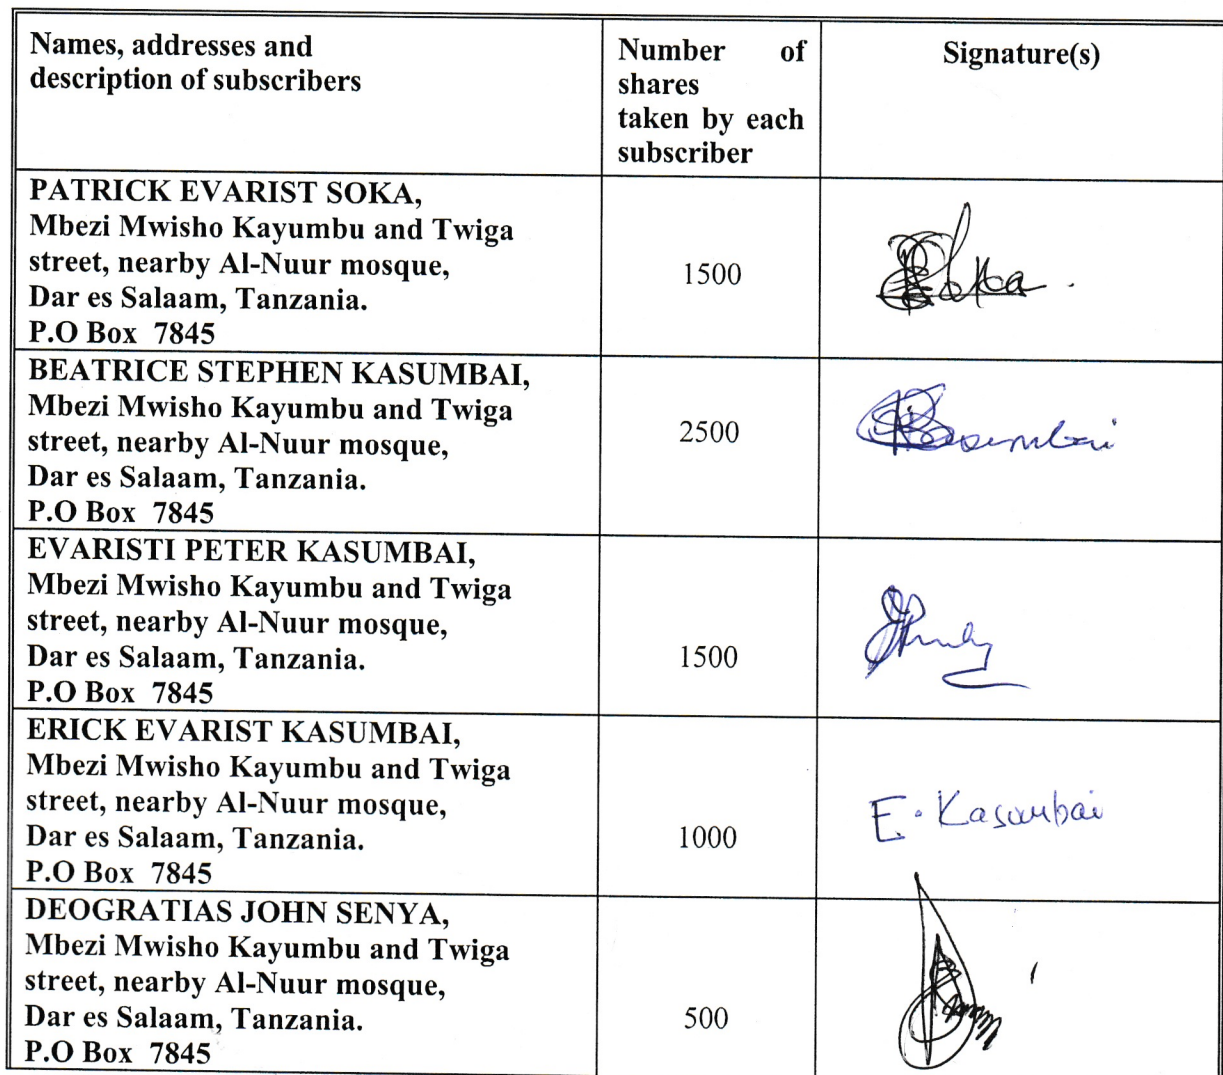 Names, addresses and
description of subscribers
Number of
shares
taken by each
subscriber
Signature(s)
PATRICK EVARIST SOKA,
Mbezi Mwisho Kayumbu and Twiga
street, nearby Al-Nuur mosque,
Dar es Salaam, Tanzania.
P.O Box 7845
1500
Soka
BEATRICE STEPHEN KASUMBAI,
Mbezi Mwisho Kayumbu and Twiga
street, nearby Al-Nuur mosque,
Dar es Salaam, Tanzania.
P.O Box 7845
2500
EVARISTI PETER KASUMBAI,
Mbezi Mwisho Kayumbu and Twiga
street, nearby Al-Nuur mosque,
Dar es Salaam, Tanzania.
P.O Box 7845
1500
ERICK EVARIST KASUMBAI,
Mbezi Mwisho Kayumbu and Twiga
street, nearby Al-Nuur mosque,
Dar es Salaam, Tanzania.
P.O Box 7845
1000
E. Kasumbai
DEOGRATIAS JOHN SENYA,
Mbezi Mwisho Kayumbu and Twiga
street, nearby Al-Nuur mosque,
Dar es Salaam, Tanzania.
P.O Box 7845
500